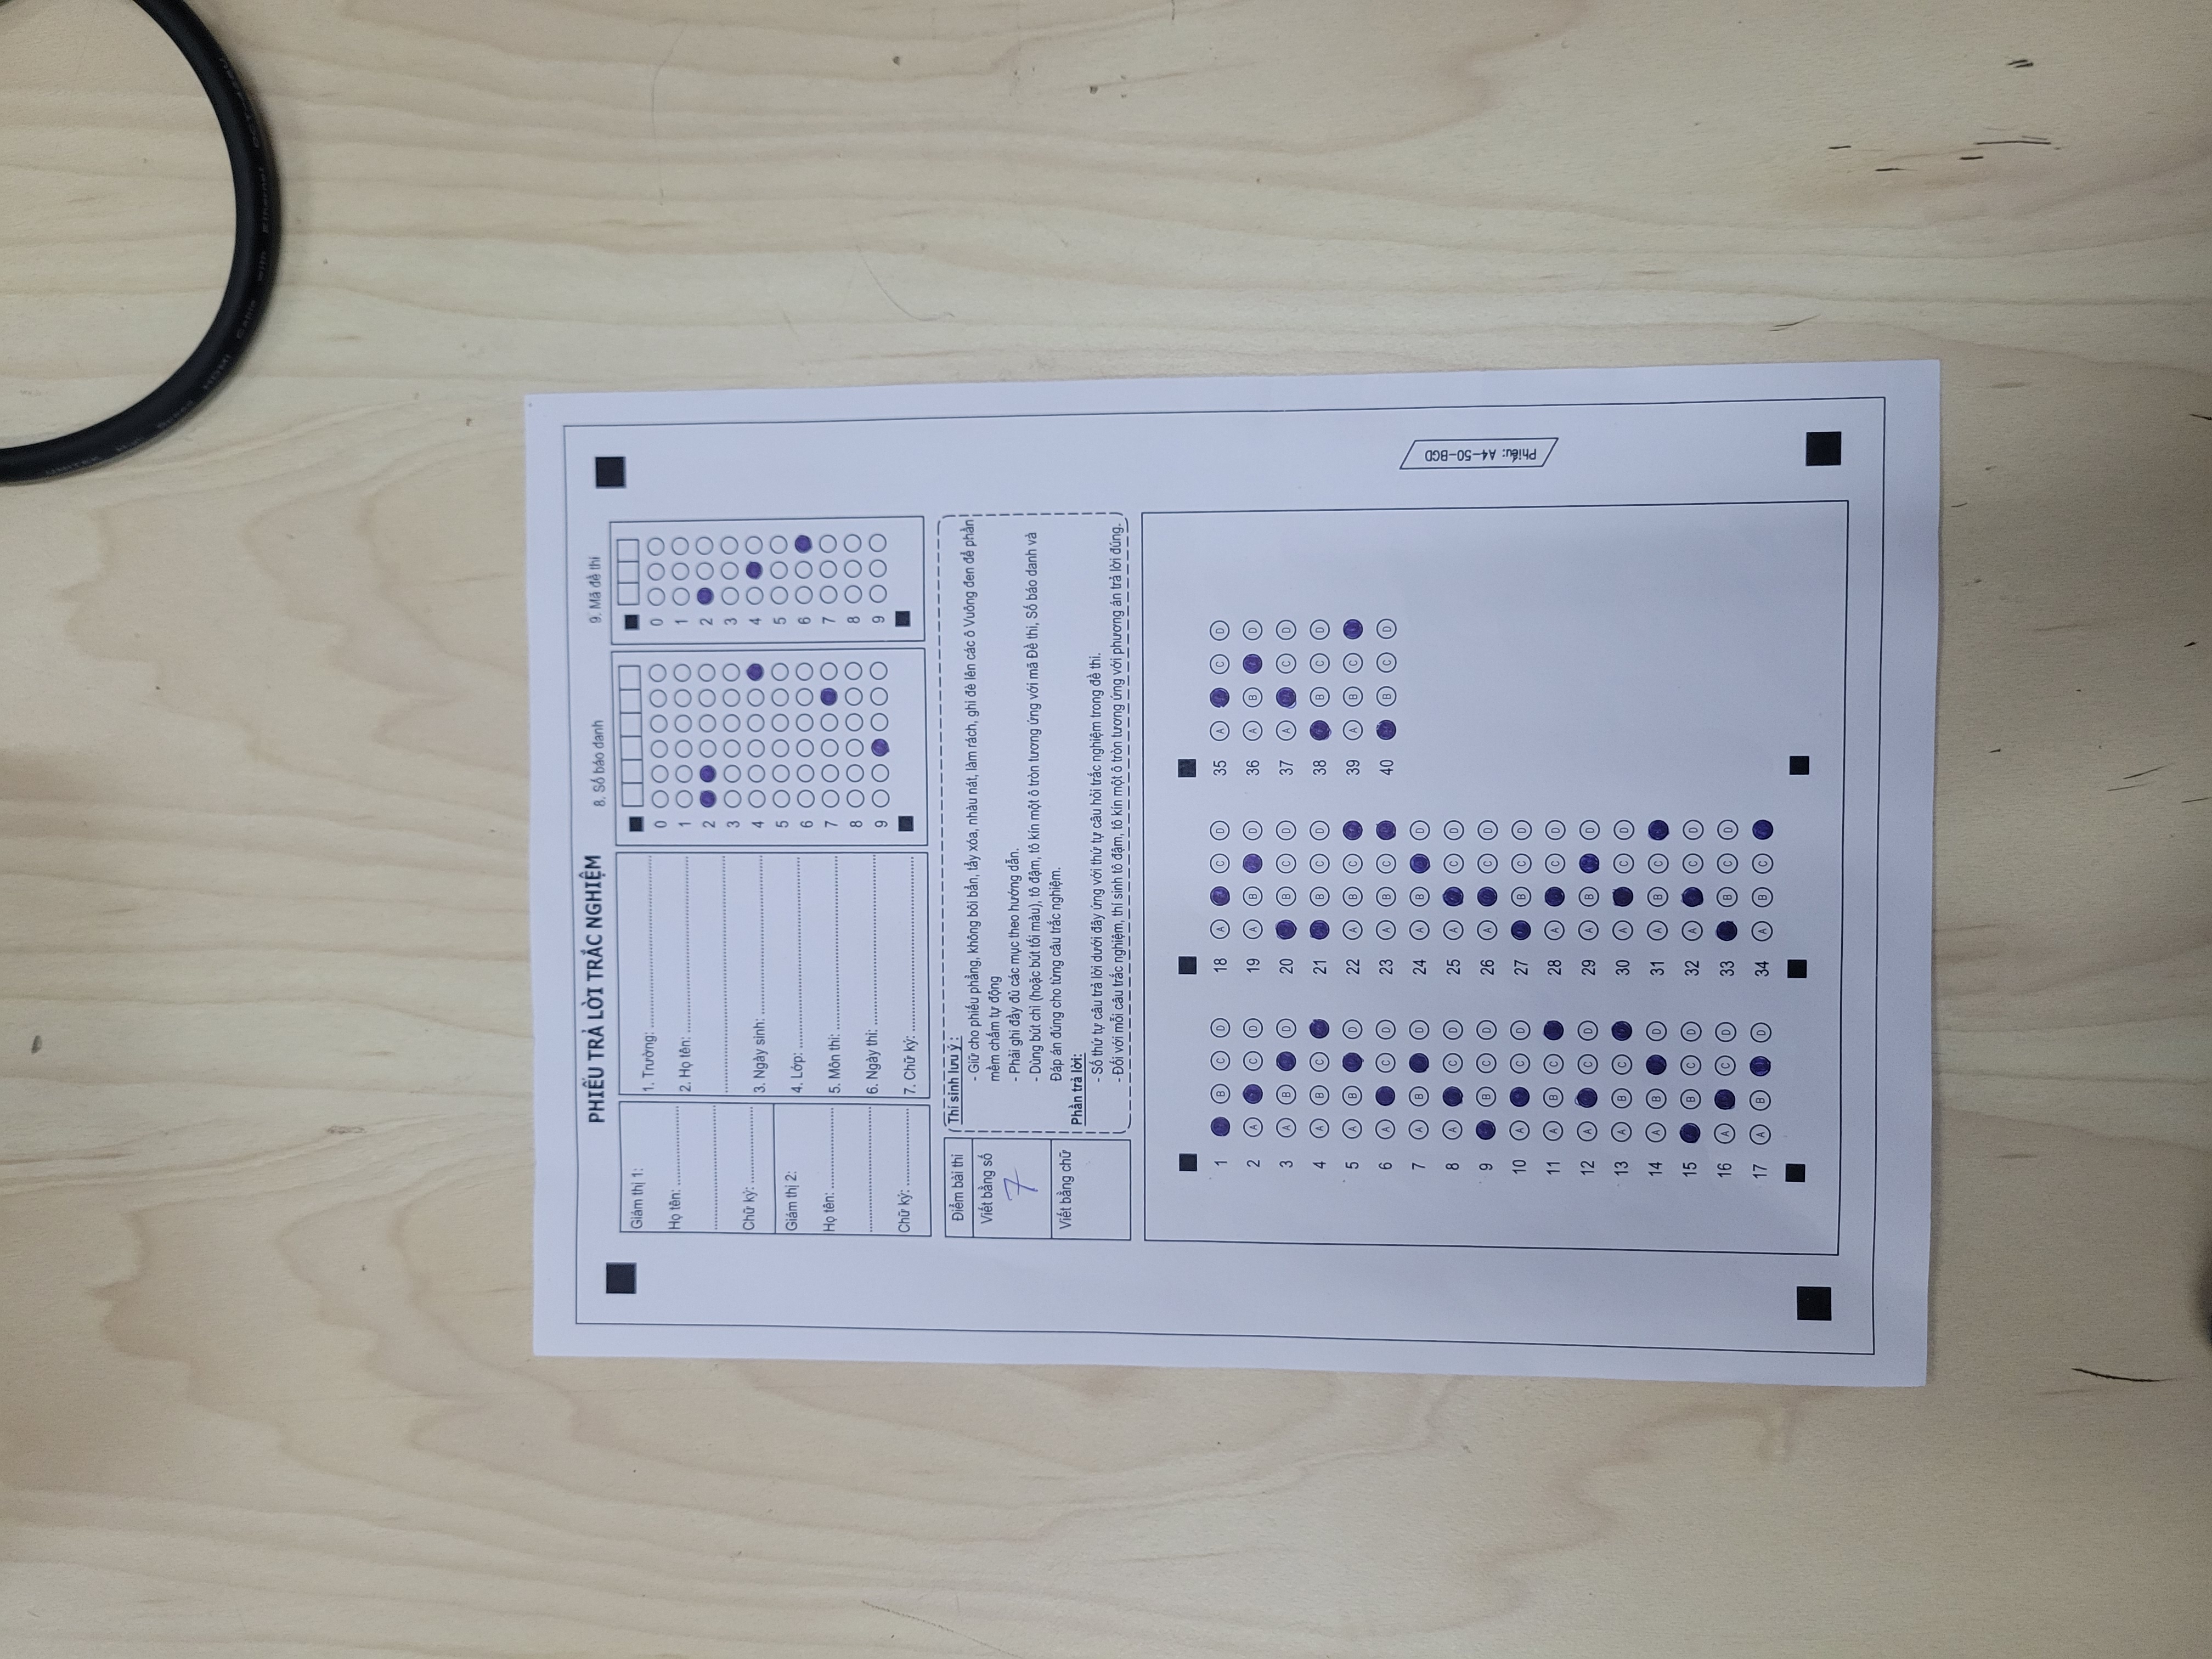 PHIẾU TRẢ LỜI TRẮC NGHIỆM
Giám thị 1:
Họ tên: ........................
........................
Chữ ký: ........................
Giám thị 2:
Họ tên: ........................
........................
Chữ ký: ........................
1. Trường: ........................
2. Họ tên: ........................
........................
3. Ngày sinh: ........................
4. Lớp: ........................
5. Môn thi: ........................
6. Ngày thi: ........................
7. Chữ ký: ........................
8. Số báo danh
0
1
2
3
4
5
6
7
8
9
9. Mã đề thi
0
1
2
3
4
5
6
7
8
9
Điểm bài thi
Viết bằng số
7
Viết bằng chữ
Thí sinh lưu ý :
- Giữ cho phiếu phẳng, không bôi bẩn, tẩy xóa, nhàu nát, làm rách, ghi đè lên các ô Vuông đen để phần
mềm chấm tự động
- Phải ghi đầy đủ các mục theo hướng dẫn.
- Dùng bút chì (hoặc bút tối màu), tô đậm, tô kín một ô tròn tương ứng với mã Đề thi, Số báo danh và
Đáp án đúng cho từng câu trắc nghiệm.
Phần trả lời:
- Số thứ tự câu trả lời dưới đây ứng với thứ tự câu hỏi trắc nghiệm trong đề thi.
- Đối với mỗi câu trắc nghiệm, thí sinh tô đậm, tô kín một ô tròn tương ứng với phương án trả lời đúng.
1 B C D
2 A C D
3 A B D
4 A B C
5 A B D
6 A C D
7 A B D
8 A C D
9 B C D
10 A C D
11 A B C
12 A C D
13 A B C
14 A B D
15 B C D
16 A C D
17 A B D
18 A C D
19 A B D
20 B C D
21 B C D
22 A B C
23 A B C
24 A B D
25 A C D
26 A C D
27 B C D
28 A C D
29 A B D
30 A C D
31 A B C
32 A C D
33 B C D
34 A B C
35 A C D
36 A B D
37 A C D
38 B C D
39 A B C
40 B C D
Phiếu: A4-50-BGD